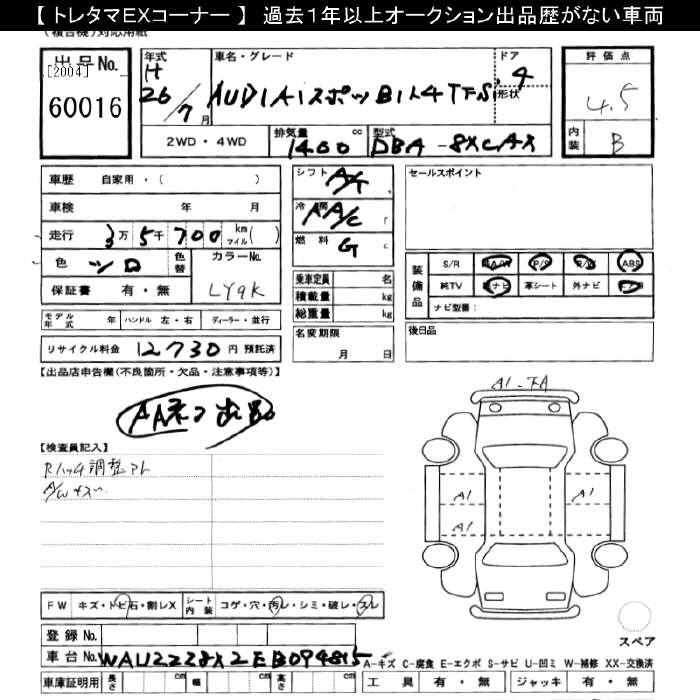 【 トレタマEXコーナー 】 過去1年以上オークション出品歴がない車両
出品No. [2004] 60016
年式 H26/7月
車名・グレード AUDI A1スポツB 1.4TFSI
ドア 4 形状
評価点 4.5
内装 B
2WD・4WD 排気量 1400 cc 型式 DBA-8XCAX
車歴 自家用・( )
車検 年 月
走行 3万5千700 km マイル( )
色 シロ 色替 カラーNo. LY9K
保証書 有・無
モデル年式 年 ハンドル 左・右 ディーラー・並行
リサイクル料金 12730 円 預託済
シフト A/T
冷房 AA/C
燃料 G
乗車定員 名
積載量 kg
総重量 kg
名変期限 月 日
セールスポイント
装備品 S/R A/W P/S P/W ABS
純TV 純ナビ 革シート 外ナビ
ナビ型番:
後日品
【出品店申告欄(不良箇所・欠品・注意事項等)】
AAネマ出品
【検査員記入】
Rハッチ調整アト
A/Wキズ
A1-下A
A1
A1
A1
FW キズ・トビ石・割レX シート内装 コゲ・穴・汚レ・シミ・破レ・スレ
スペア
登録No.
車台No. WAUZZZ8X2EB094815
A-キズ C-腐食 E-エクボ S-サビ U-凹ミ W-補修 XX-交換済
車庫証明用 長さ cm 幅 cm 高さ cm 工具 有・無 ジャッキ 有・無